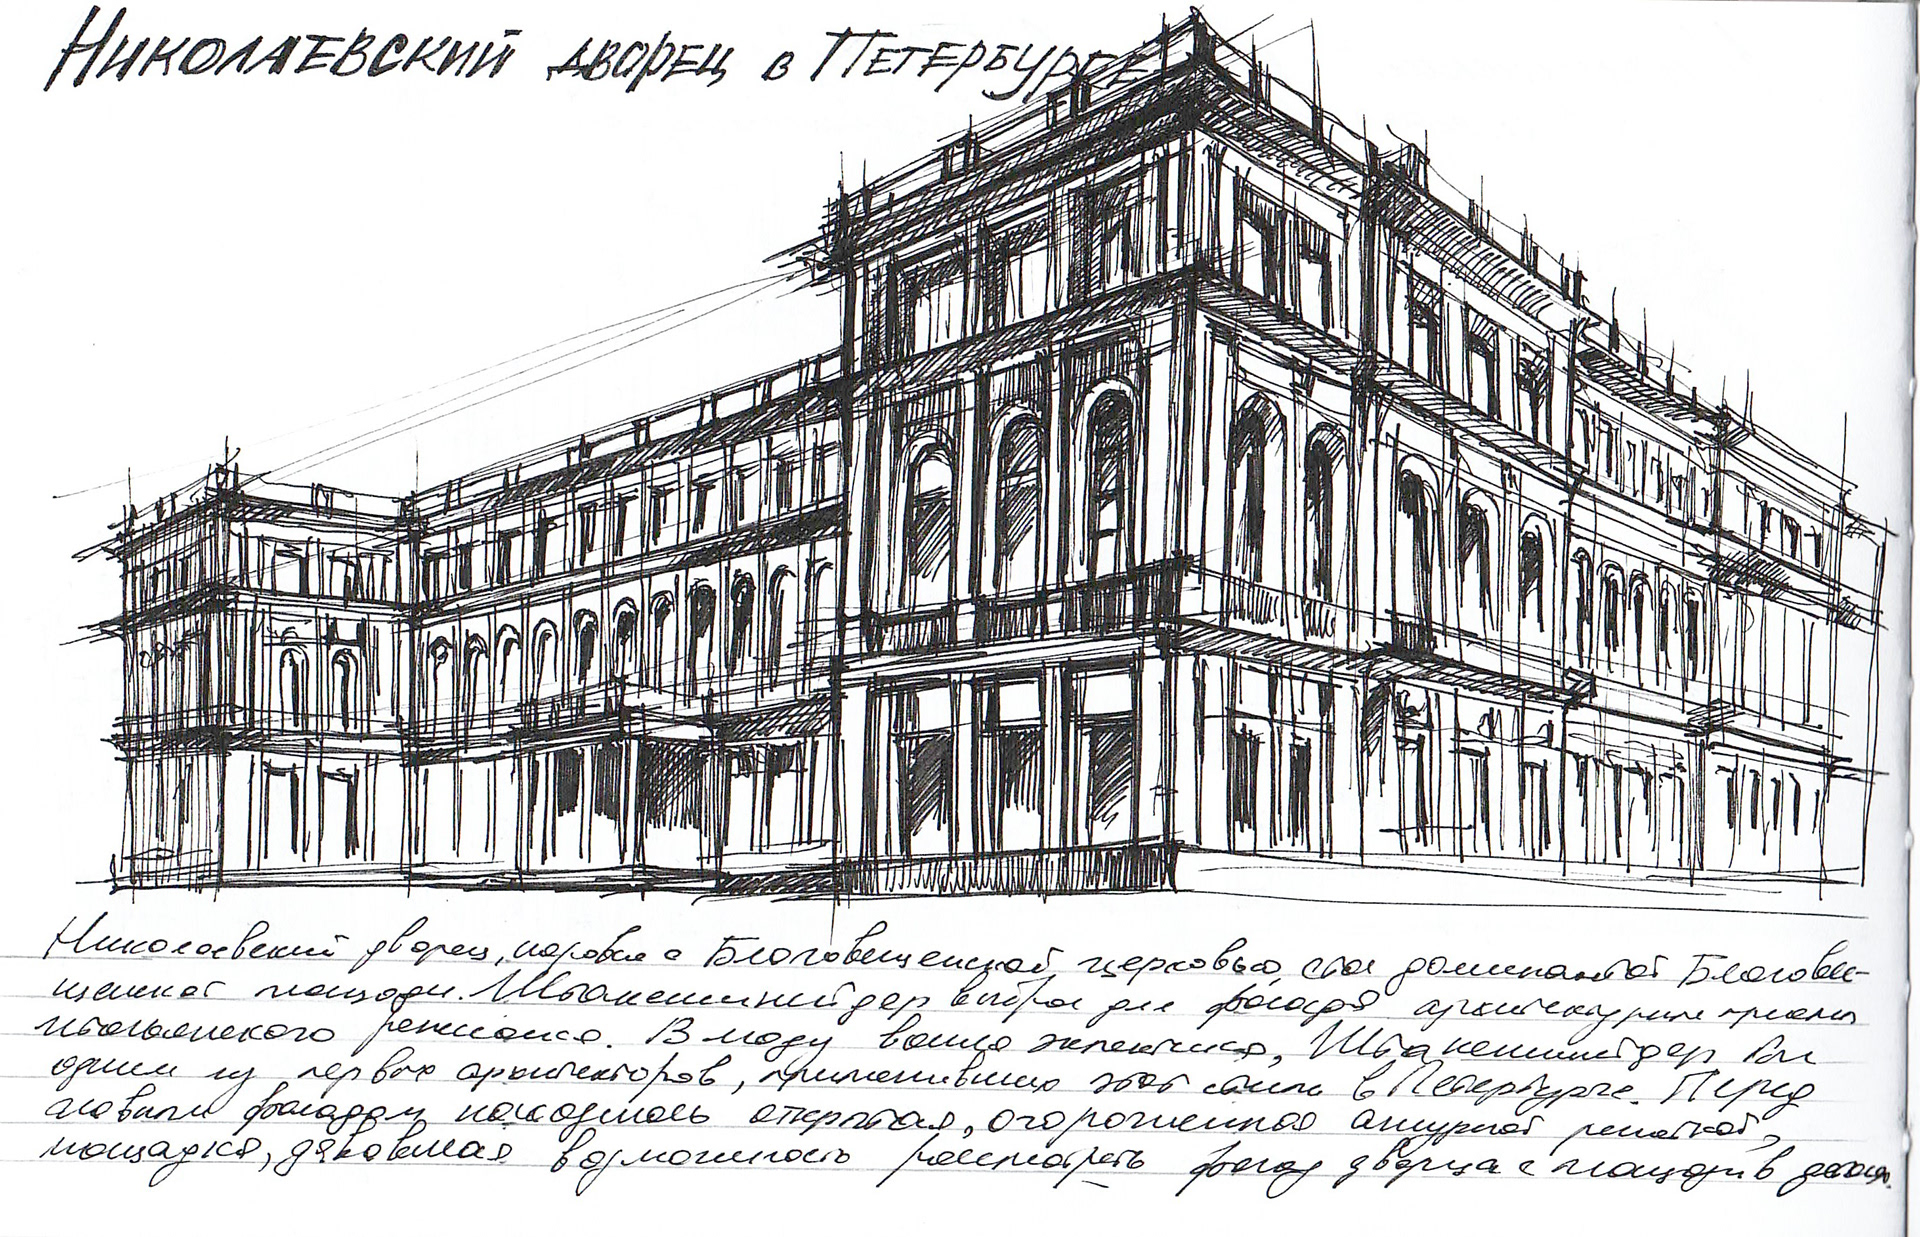 Николаевский дворец в Петербурге
Николаевский дворец, наравне с Благовещенской церковью, стал доминантой Благове-
щенской площади. Штакеншнейдер выбрал для фасада архитектурные приемы
итальянского ренессанса. В моду вошла эклектика, Штакеншнейдер был
одним из первых архитекторов, применивших этот стиль в Петербурге. Перед
главным фасадом находилась открытая, огороженная ажурной решеткой,
площадка, дававшая возможность рассмотреть фасад дворца с площади в деталях.